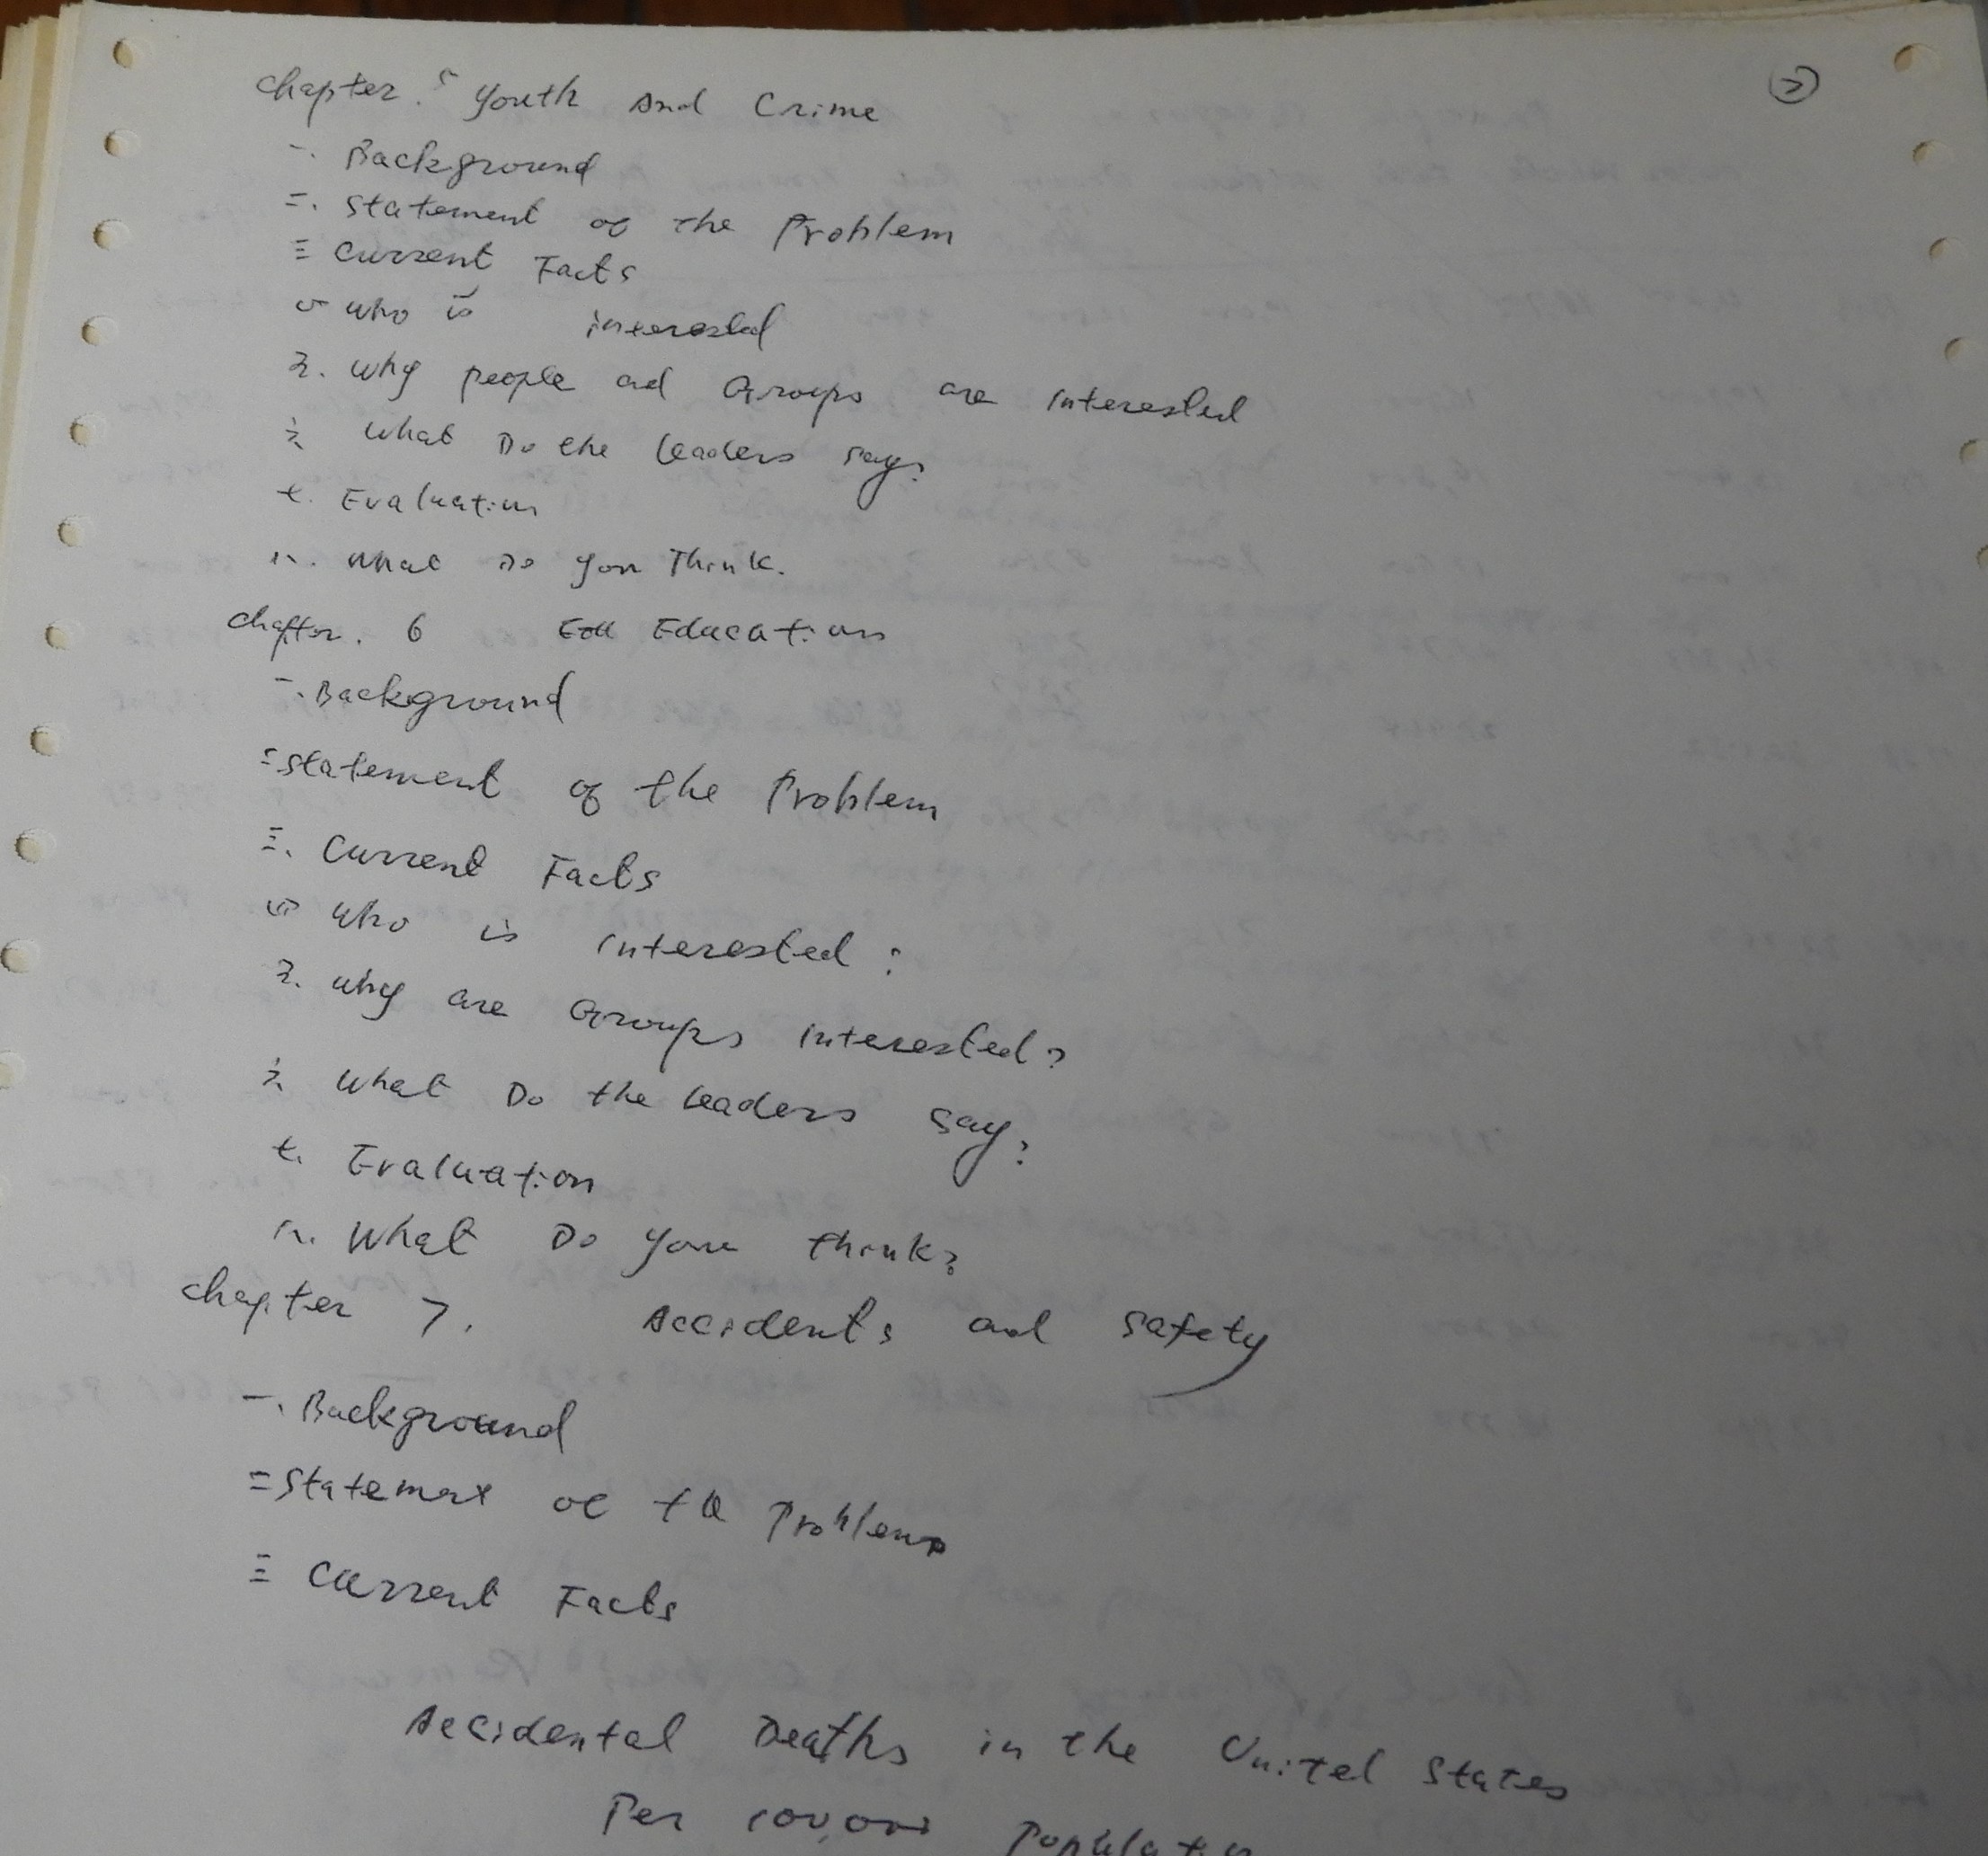 ②
Chapter. 5 Youth And Crime
一. Background
二. Statement of the Problem
三 Current Facts
四 Who is interested
五. Why people and Groups are interested
六 What Do the leaders say?
七. Evaluation
八. What Do you Think.
Chapter. 6 Education
一. Background
二 Statement of the Problem
三. Current Facts
四 Who is interested?
五. Why are Groups interested?
六 What Do the leaders say?
七. Evaluation
八. What Do you think?
Chapter 7. Accidents and Safety
一. Background
二 Statement of the Problems
三 Current Facts
Accidental Deaths in the United States
Per 100,000 Population